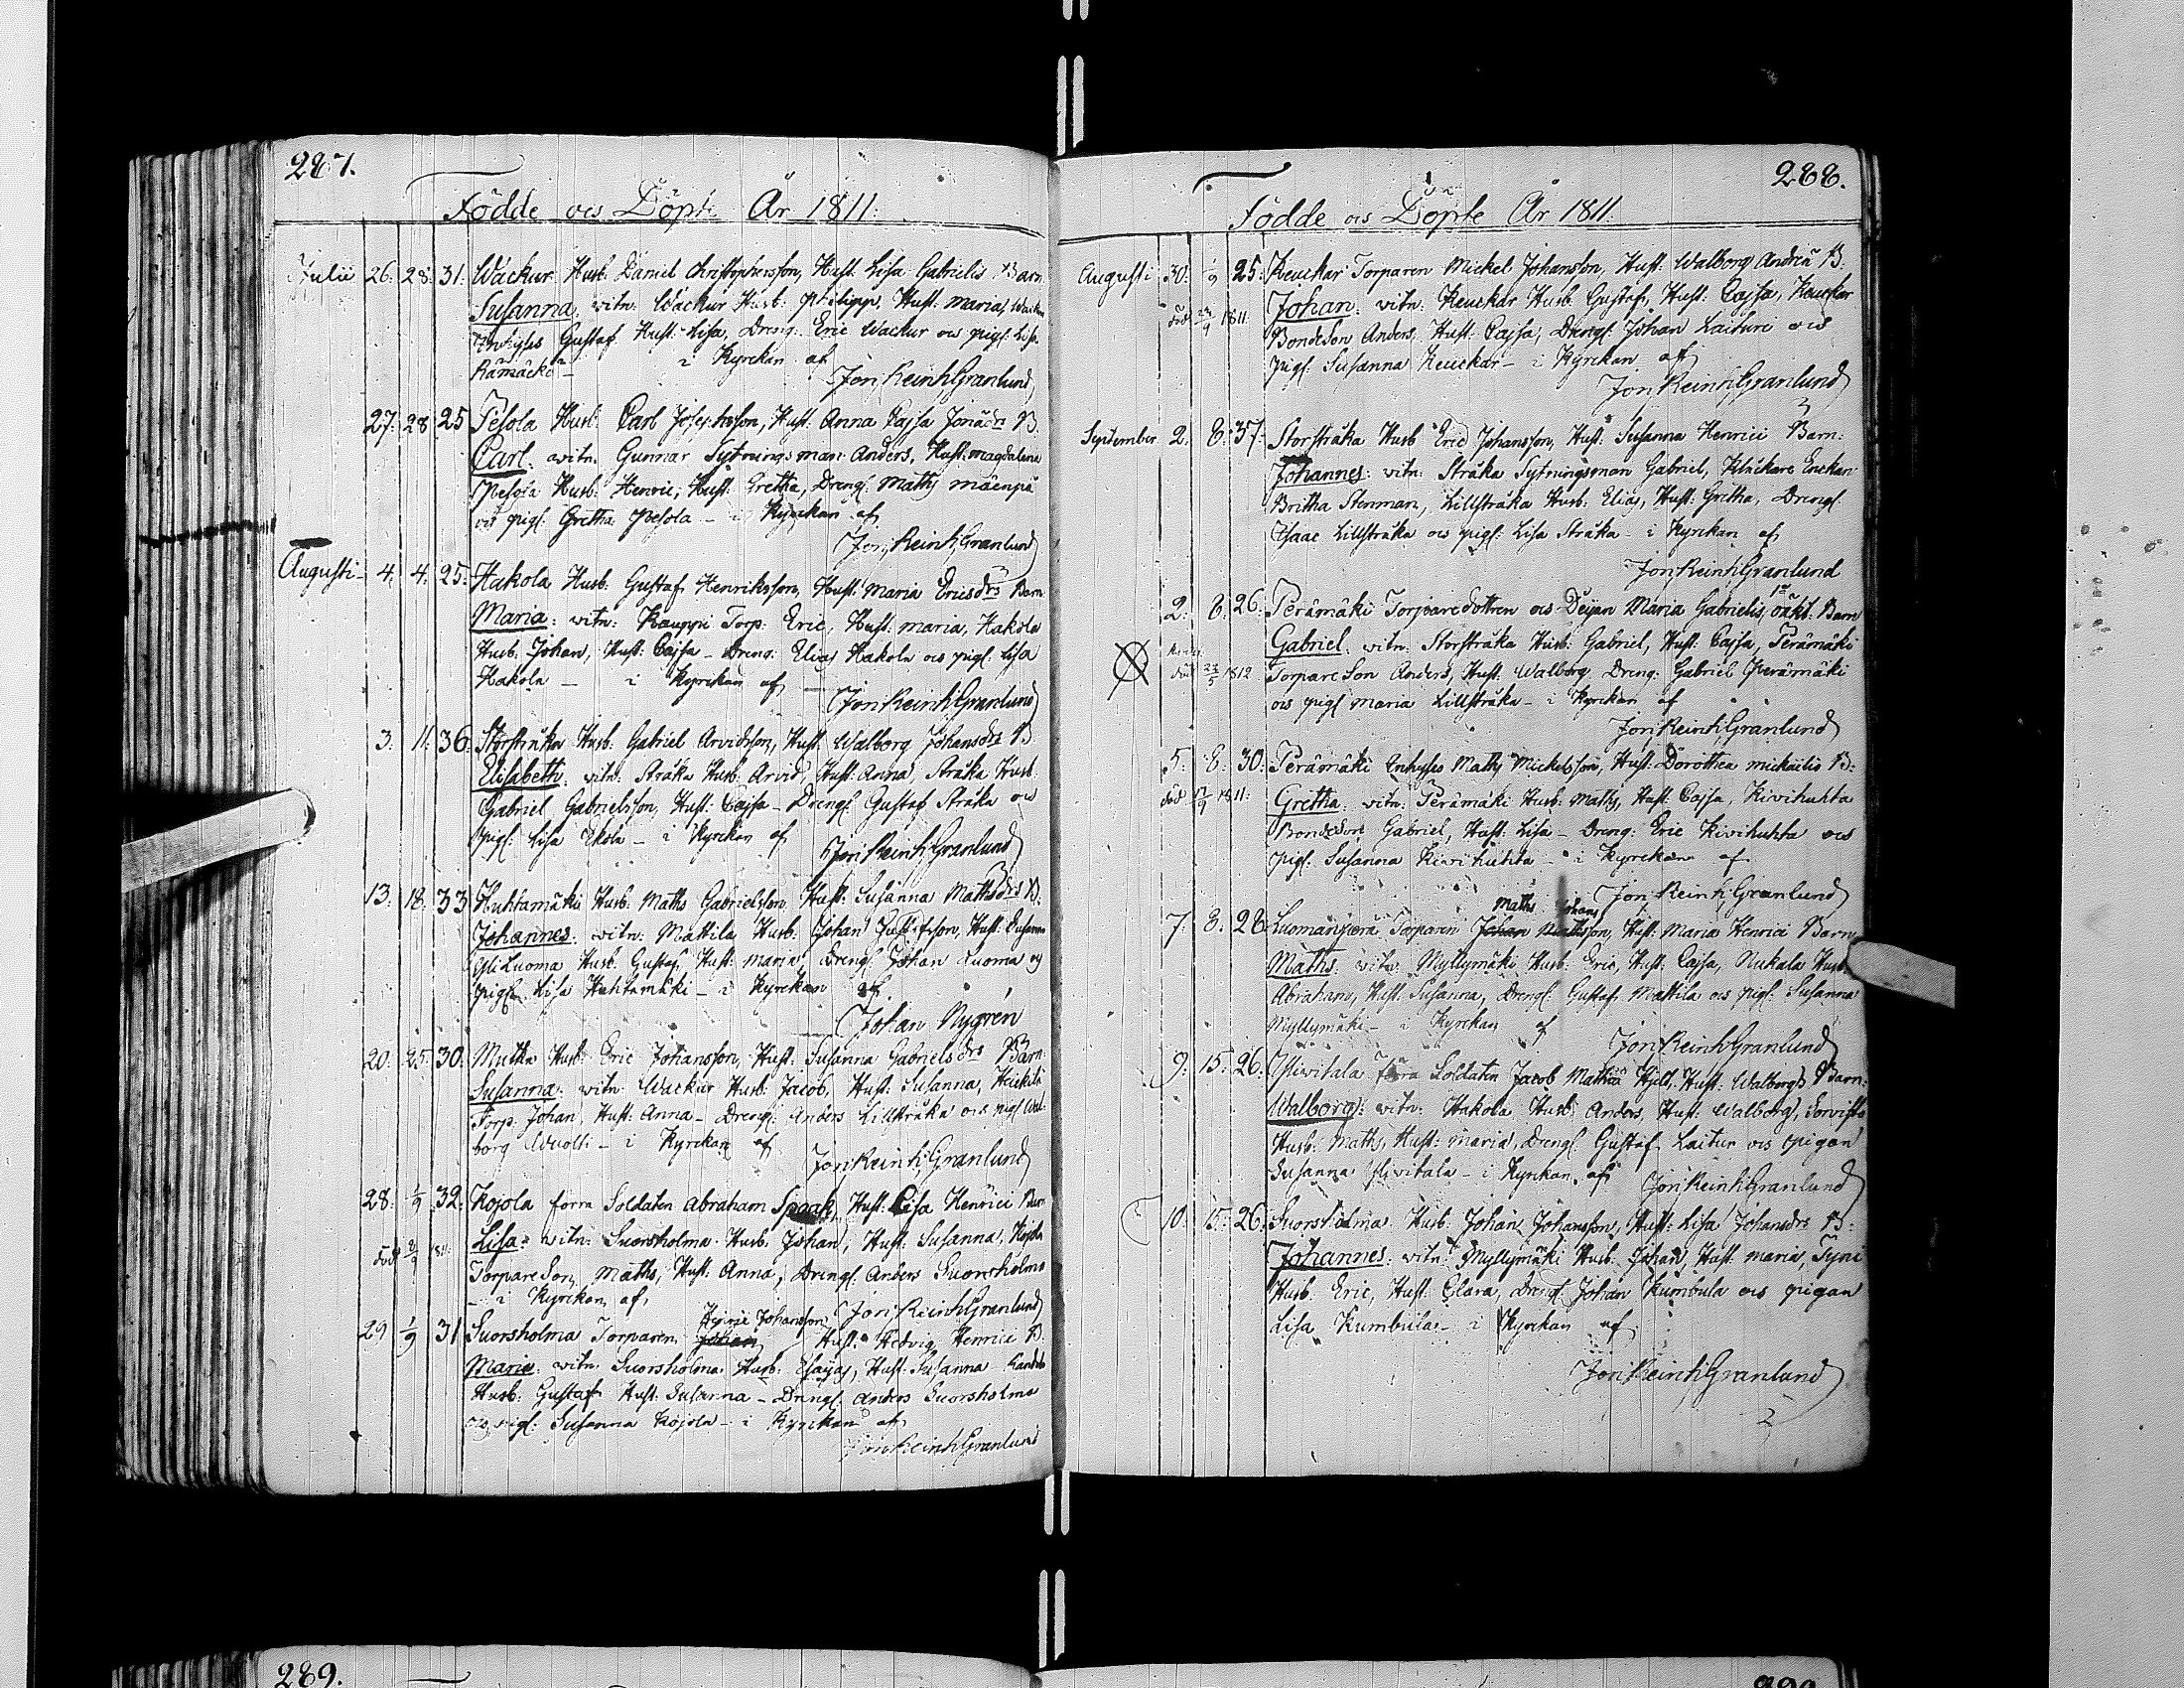 287.
Födde och Döpte År 1811:
Julii 26: 28: 31: Wäckur Husb: Daniel Christophersson, Hust: Lisa Gabrielis Barn
Susanna. witn: Wäckur Husb: Philipp, Hust: Maria, Wäckur
Inhyses Gustaf Hust: Lisa, Dreng: Eric Wackur och pigf: Lisa
Rämäcki – i Kyrckan af
Jon Reinh Granlund
27: 28: 25 Pesola Husb: Carl Josephsson, Hust: Anna Cajsa Jonædr B.
Carl: witn: Gunnar Sytningsman Anders, Hust: Magdalena
Pesola Husb: Henric, Hust: Gretha, Drengf: Maths Mäenpä
och pigf: Gretha Pesola – i Kyrckan af
Jon Reinh Granlund
Augusti – 4: 4: 25: Hakola Husb: Gustaf Henriksson, Hust: Maria Ericsdrs Barn
Maria: witn: Kauppi Torp: Eric, Hust: Maria, Hakola
Husb: Johan, Hust: Cajsa – Dreng: Elias Hakola och pigf: Lisa
Hakola – i Kyrckan af
Jon Reinh Granlund
3: 11: 36: Storstråka Husb: Gabriel Arvidsson, Hust: Walborg Johansdrs B.
Elisabeth: witn: Stråka Husb: Arvid, Hust: Anna, Stråka Husb:
Gabriel Gabrielsson, Hust: Cajsa – Drengf: Gustaf Stråka och
pigf: Lisa Ekola – i Kyrckan af
Jon Reinh Granlund
13: 18: 33 Huhtamäki Husb: Maths Gabrielsson Hust: Susanna Mathsdrs B:
Johannes: witn: Mattila Husb: Johan Gustafsson, Hust: Susanna
Luoma Husb: Gustaf, Hust: Maria, Drengf: Johan Luoma och
pigf: Lisa Huhtamäki – i Kyrckan af
Johan Nygren
20: 25: 30: Mutka Husb: Eric Johansson, Hust: Susanna Gabrielsdrs Barn
Susanna: witn: Wackur Husb: Jacob, Hust: Susanna, Heickilä
Torp: Johan, Hust: Anna – Drengf: Anders Lillstråka och pigf Wal-
borg Wuolti – i Kyrckan af
Jon Reinh Granlund
28: 1/9 32: Kojola förra Soldaten Abraham Spaak, Hust: Lisa Henrici Barn
Lisa: witn: Suorsholma Husb: Johan, Hust: Susanna, Kojola
död 8/9 1811:
TorpareSon Maths, Hust: Anna, Drengf: Anders Suorsholma
– i Kyrckan af,
Jon Reinh Granlund
Johansson
29 1/9 31 Suorsholma Torparen Johan Hust: Hedvig Henrici B.
Maria: witn: Suorsholma Husb: Esaijas, Hust: Susanna
Husb: Gustaf Hust: Susanna – Drengf: Anders Suorsholma
och pigf: Susanna Kojola – i Kyrckan af
Jon Reinh Granlund
288.
Födde och Döpte År 1811.
Augusti 30: 1/9 25: Keuckar Torparen Mickel Johansson, Hust: Walborg Andreæ B.
Johan: witn: Keuckar Husb: Gustaf, Hust: Cajsa, Keuckar
död 24/9 1811:
BondeSon Anders, Hust: Cajsa, Drengf: Johan Laituri och
pigf: Susanna Keuckar – i Kyrckan af
Jon Reinh Granlund
September 2: 8: 37: Storstråka Husb Eric Johansson, Hust: Susanna Henrici Barn:
Johannes: witn: Stråka Sytningsman Gabriel, Klåckare Enckan
Britha Stenman, Lillstråka Husb: Elias, Hust: Gretha, Drengf:
Isaac Lillstråka och pigf: Lisa Stråka – i Kyrckan af
Jon Reinh Granlund
2: 8: 26: Perämäki Torparedottren och Deijan Maria Gabrielis, 1sta oäkt: Barn
Gabriel: witn: Storstråka Husb: Gabriel, Hust: Cajsa, Perämäki
död 24/5 1812
TorpareSon Anders, Hust: Walborg Dreng: Gabriel Perämäki
och pigf Maria Lillstråka – i Kyrckan af
Jon Reinh Granlund
5: 8: 30: Perämäki Inhyses Maths Mickelsson, Hust: Dorothea Michaëlis B:
död 17/9 1811:
Gretha: witn: Perämäki Husb: Maths, Hust: Cajsa, Kivihuhta
BondeSon Gabriel, Hust: Lisa – Dreng: Eric Kivihuhta och
pigf: Susanna Kivihuhta – i Kyrckan af
Jon Reinh Granlund
Maths Johans
7: 8: 28 Luomanperä Torparen Johan Mattsson, Hust: Maria Henrici Barn
Maths: witn: Myllymäki Husb: Eric, Hust: Cajsa, Nukala Husb:
Abraham, Hust: Susanna, Drengf: Gustaf Mattila och pigf: Susanna
Myllymäki – i Kyrckan af
Jon Reinh Granlund
9: 15: 26: Yliwitala förra Soldaten Jacob Mathiæ Hjelt, Hust: Walborgs Barn:
Walborg: witn: Hakola Husb: Anders, Hust: Walborg, Sorvisto
Husb: Maths, Hust: Maria, Drengf: Gustaf Laitur och pigan
Susanna Yliwitala – i Kyrckan af
Jon Reinh Granlund
10: 15: 26: Suorsholma Husb: Johan Johansson, Hust: Lisa Johansdrs B:
Johannes: witn: Myllymäki Husb: Johan, Hust: Maria, Tyni
Husb: Eric, Hust: Clara, Drengf: Johan Kumbula och pigan
Lisa Kumbula – i Kyrckan af
Jon Reinh Granlund
2
289.